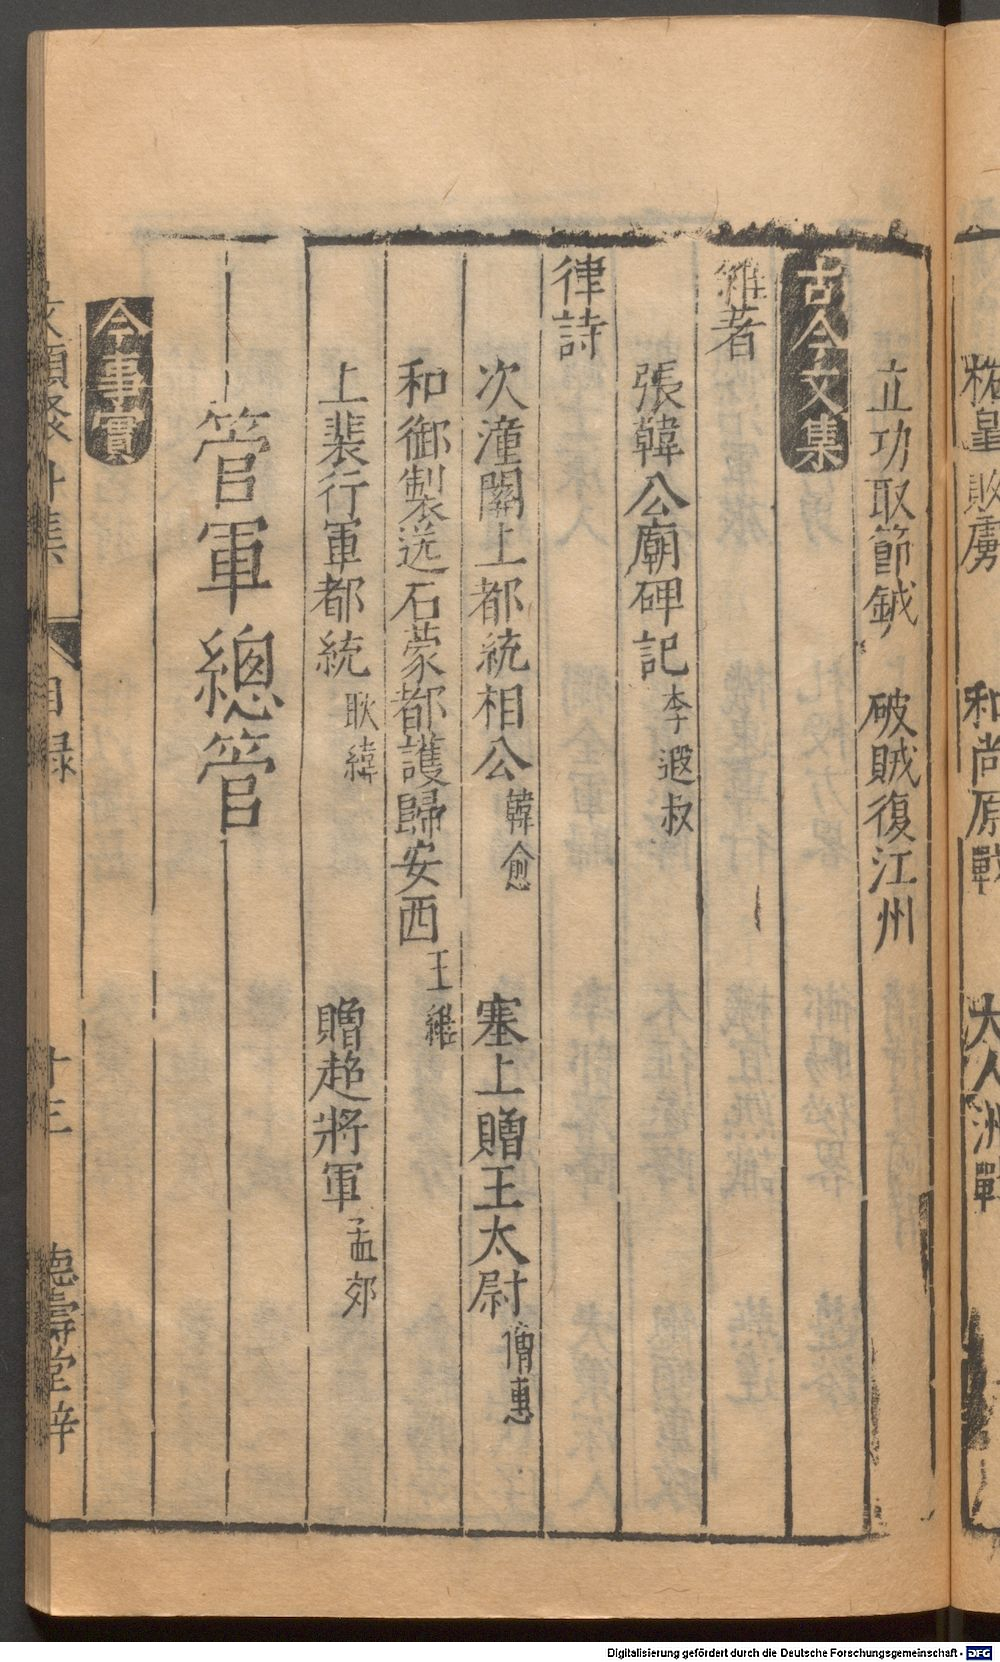 柘皐敗虜 和尚原戰 大人洲戰
立功取節鉞 破賊復江州
古今文集
雜著
張韓公廟碑記 李遐叔
律詩
次潼關上都統相公 韓愈 塞上贈王太尉 僧惠
和御製送石蒙都護歸安西 王維
上裴行軍都統 耿緯 贈趙將軍 孟郊
管軍總管
今事實
文類聚外集 目錄 十三 德壽堂梓
Digitalisierung gefördert durch die Deutsche Forschungsgemeinschaft - DFG